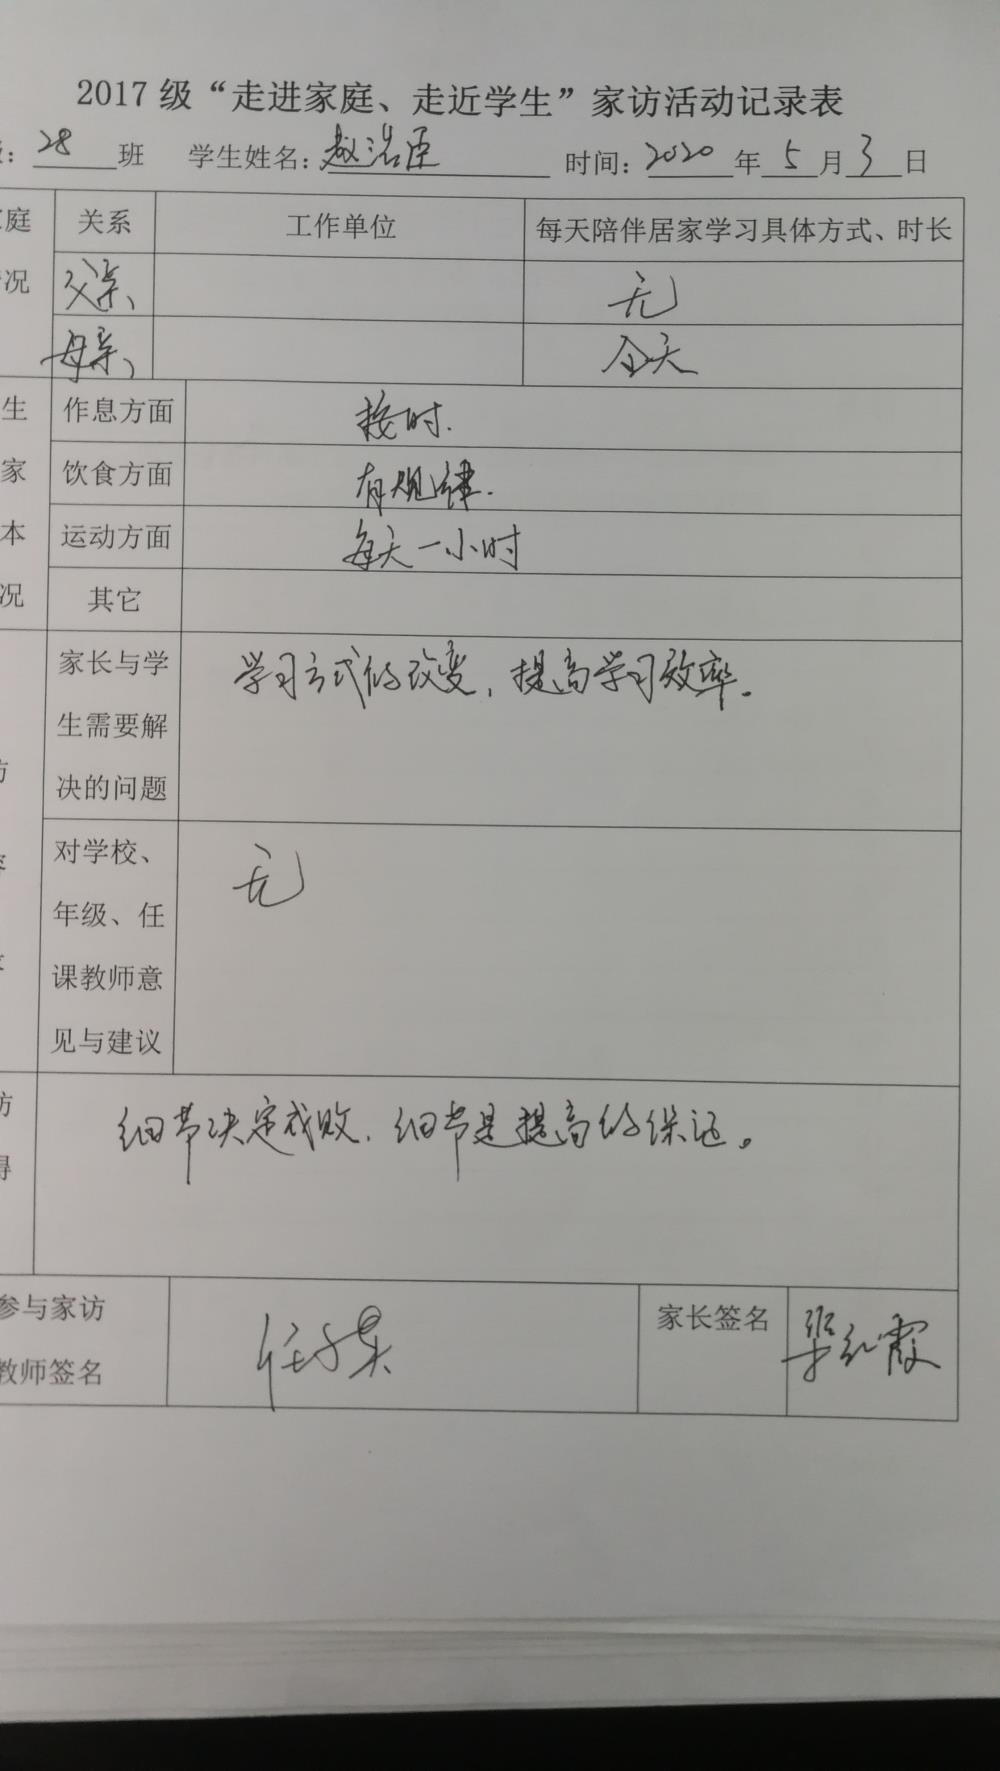 2017 级“走进家庭、走近学生”家访活动记录表
：28 班 学生姓名：赵浩臣 时间：2020 年 5 月 3 日
庭 关系 工作单位 每天陪伴居家学习具体方式、时长
况 父亲 无
母亲 全天
生 作息方面 按时.
家 饮食方面 有规律.
本 运动方面 每天一小时
况 其它
家长与学 学习方式的改变，提高学习效率。
生需要解
决的问题
对学校、 无
年级、任
课教师意
见与建议
细节决定成败，细节是提高的保证。
参与家访 家长签名
教师签名